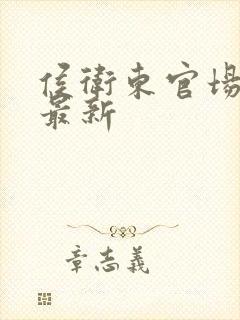 侯衛東官場
最新
章志義